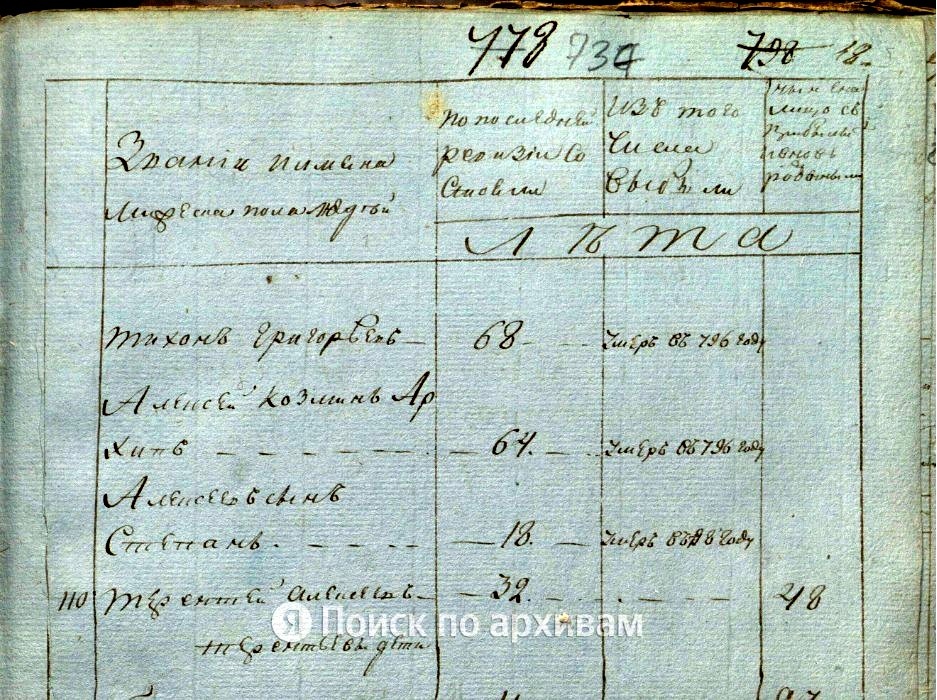 778 734 798 18.
Званіи иимена
Мужеска пола Людѣй
Попоследней
ревизіи Со
Стояли
изъ того
Числа
Выбыли
лицо съ
Л Ѣ Т А
Тихонъ Григорьевъ — 68 — умеръ въ 796 году
Алексей Козминъ Ар
хипъ — 64. — умеръ въ 796 году
Алексеевъ сынъ
Степанъ. — 18. — умеръ въ году
110 Терентей Алексеевъ — 32. — 48
Терентьевы дети
Поиск по архивам